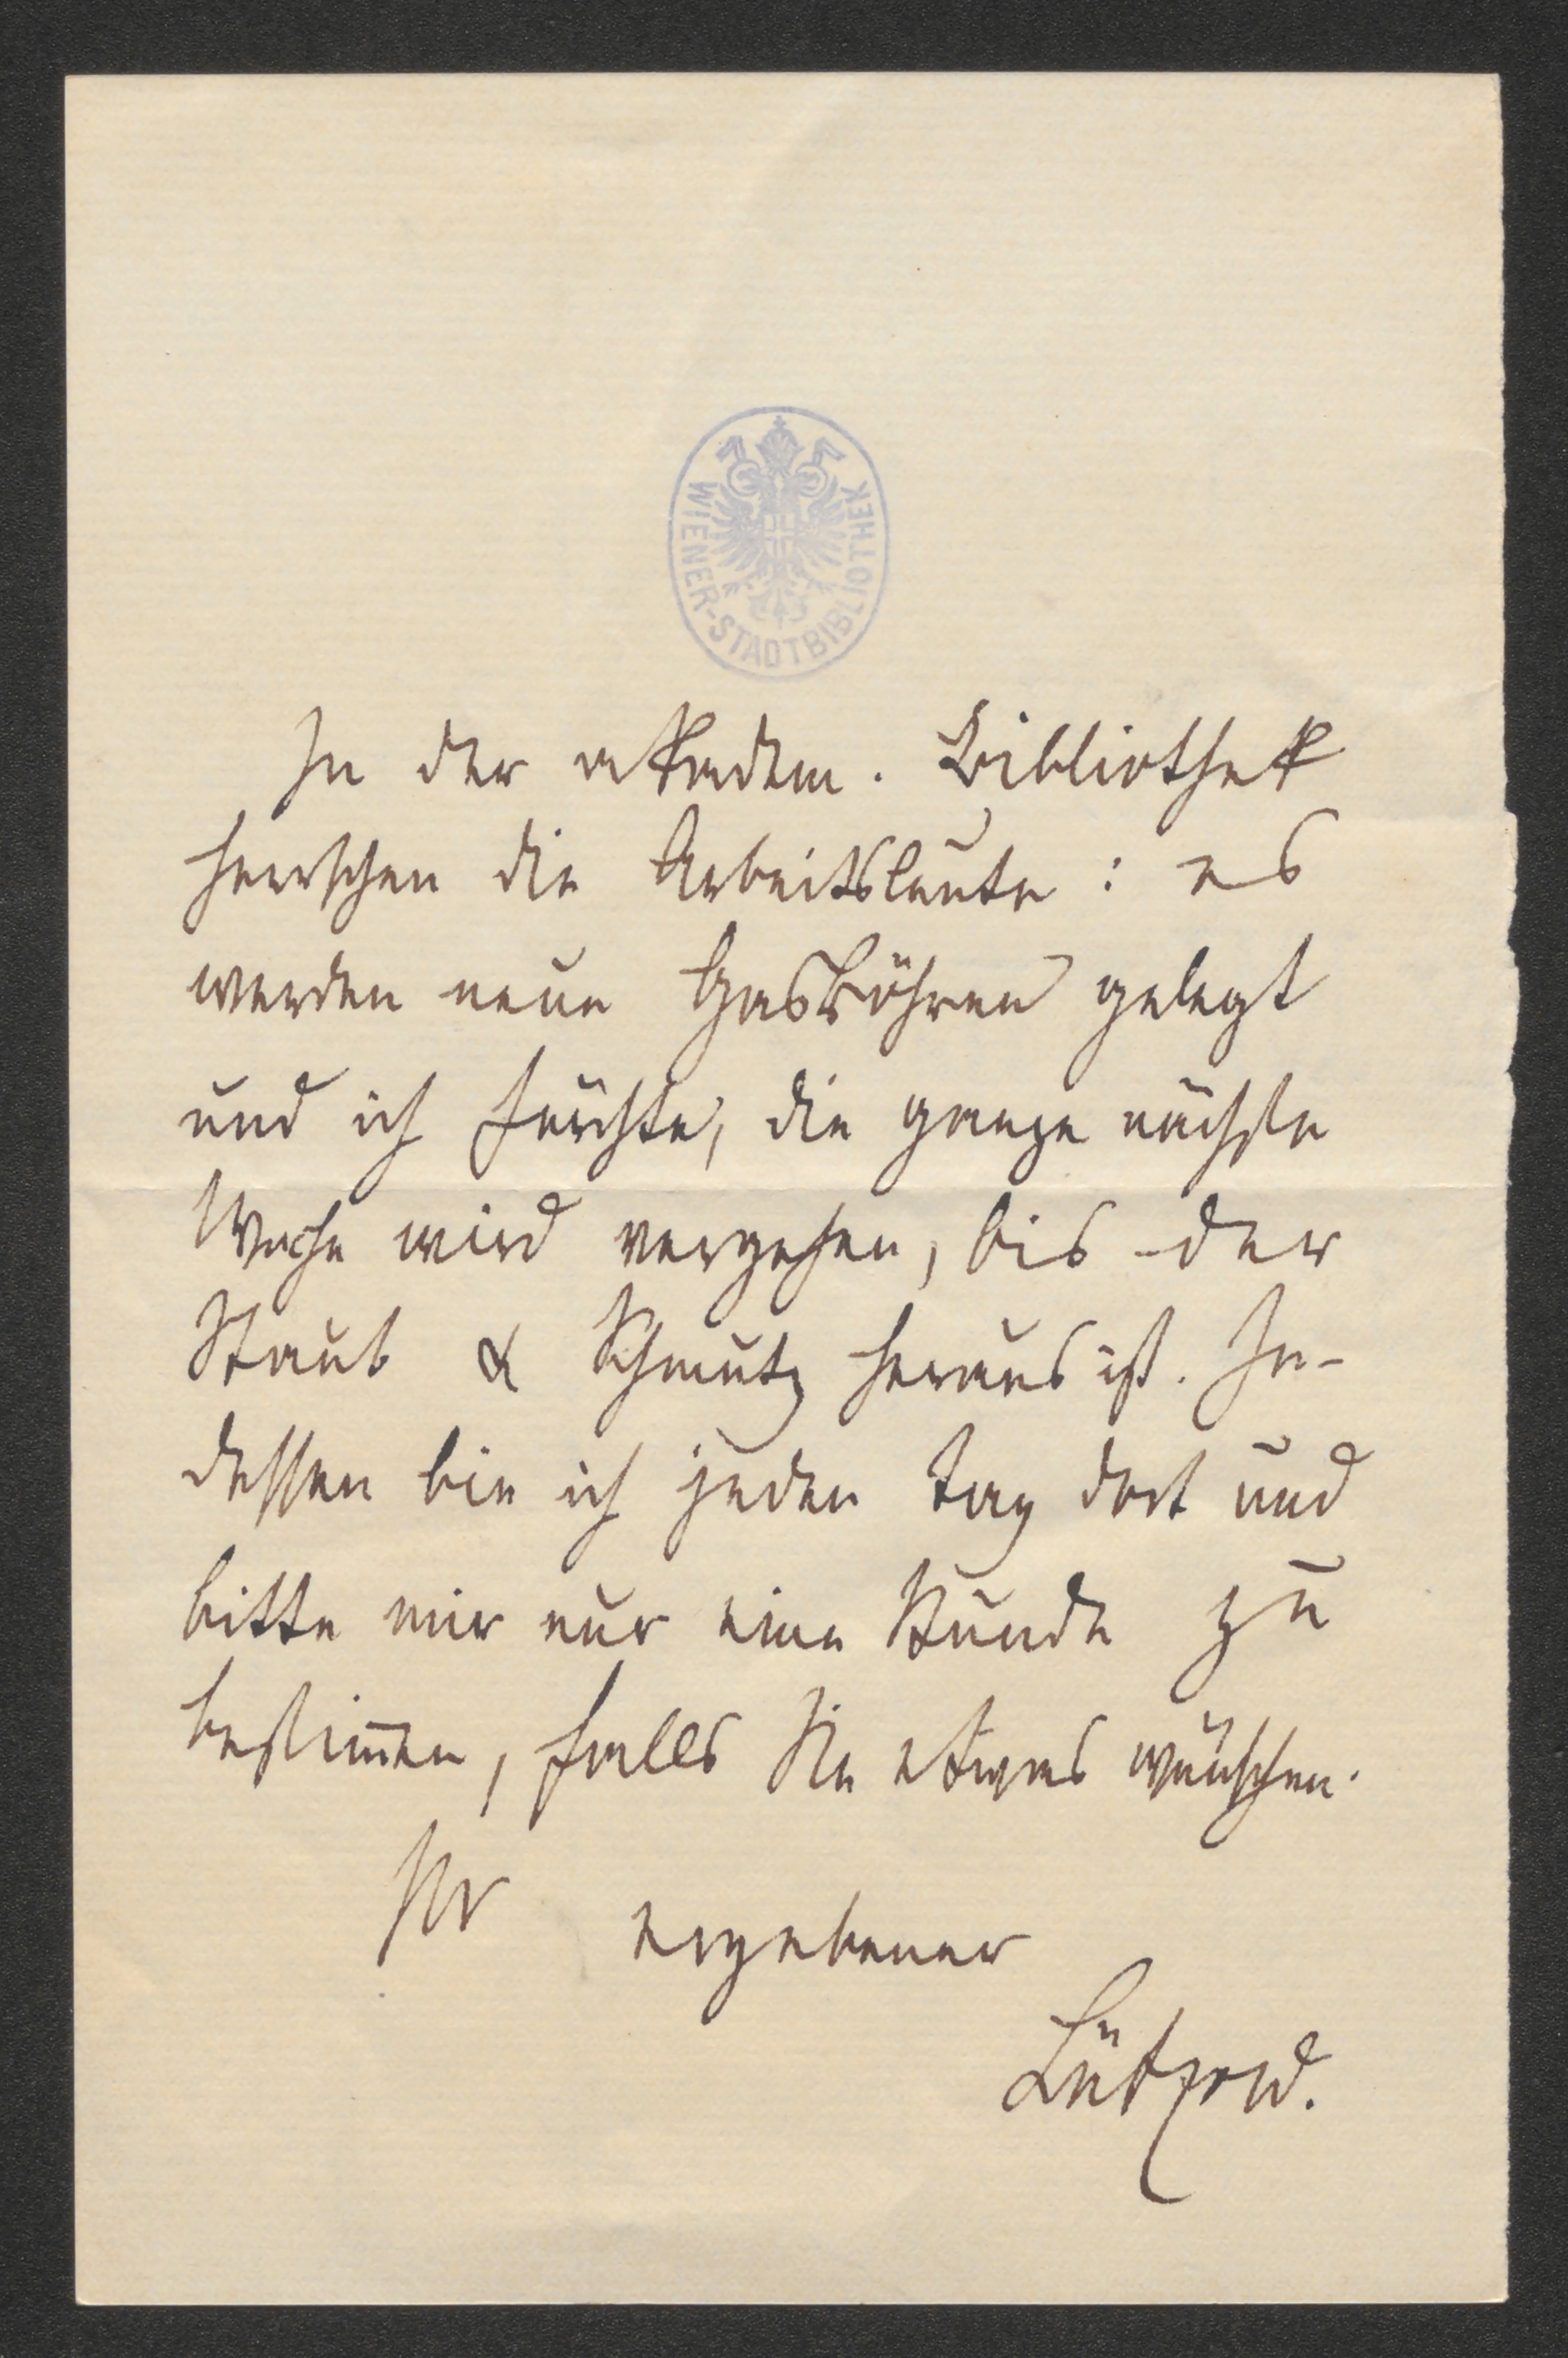 WIENER-STADTBIBLIOTHEK
In der akadem. Bibliothek
herrschen die Arbeitsleute: es
werden neue Gasröhren gelegt
und ich fürchte, die ganze nächste
Woche wird vergehen, bis der
Staub & Schmutz heraus ist. In-
dessen bin ich jeden Tag dort und
bitte mir nur eine Stunde zu
bestim̄en, falls Sie etwas wünschen.
Ihr ergebener
Lützow.